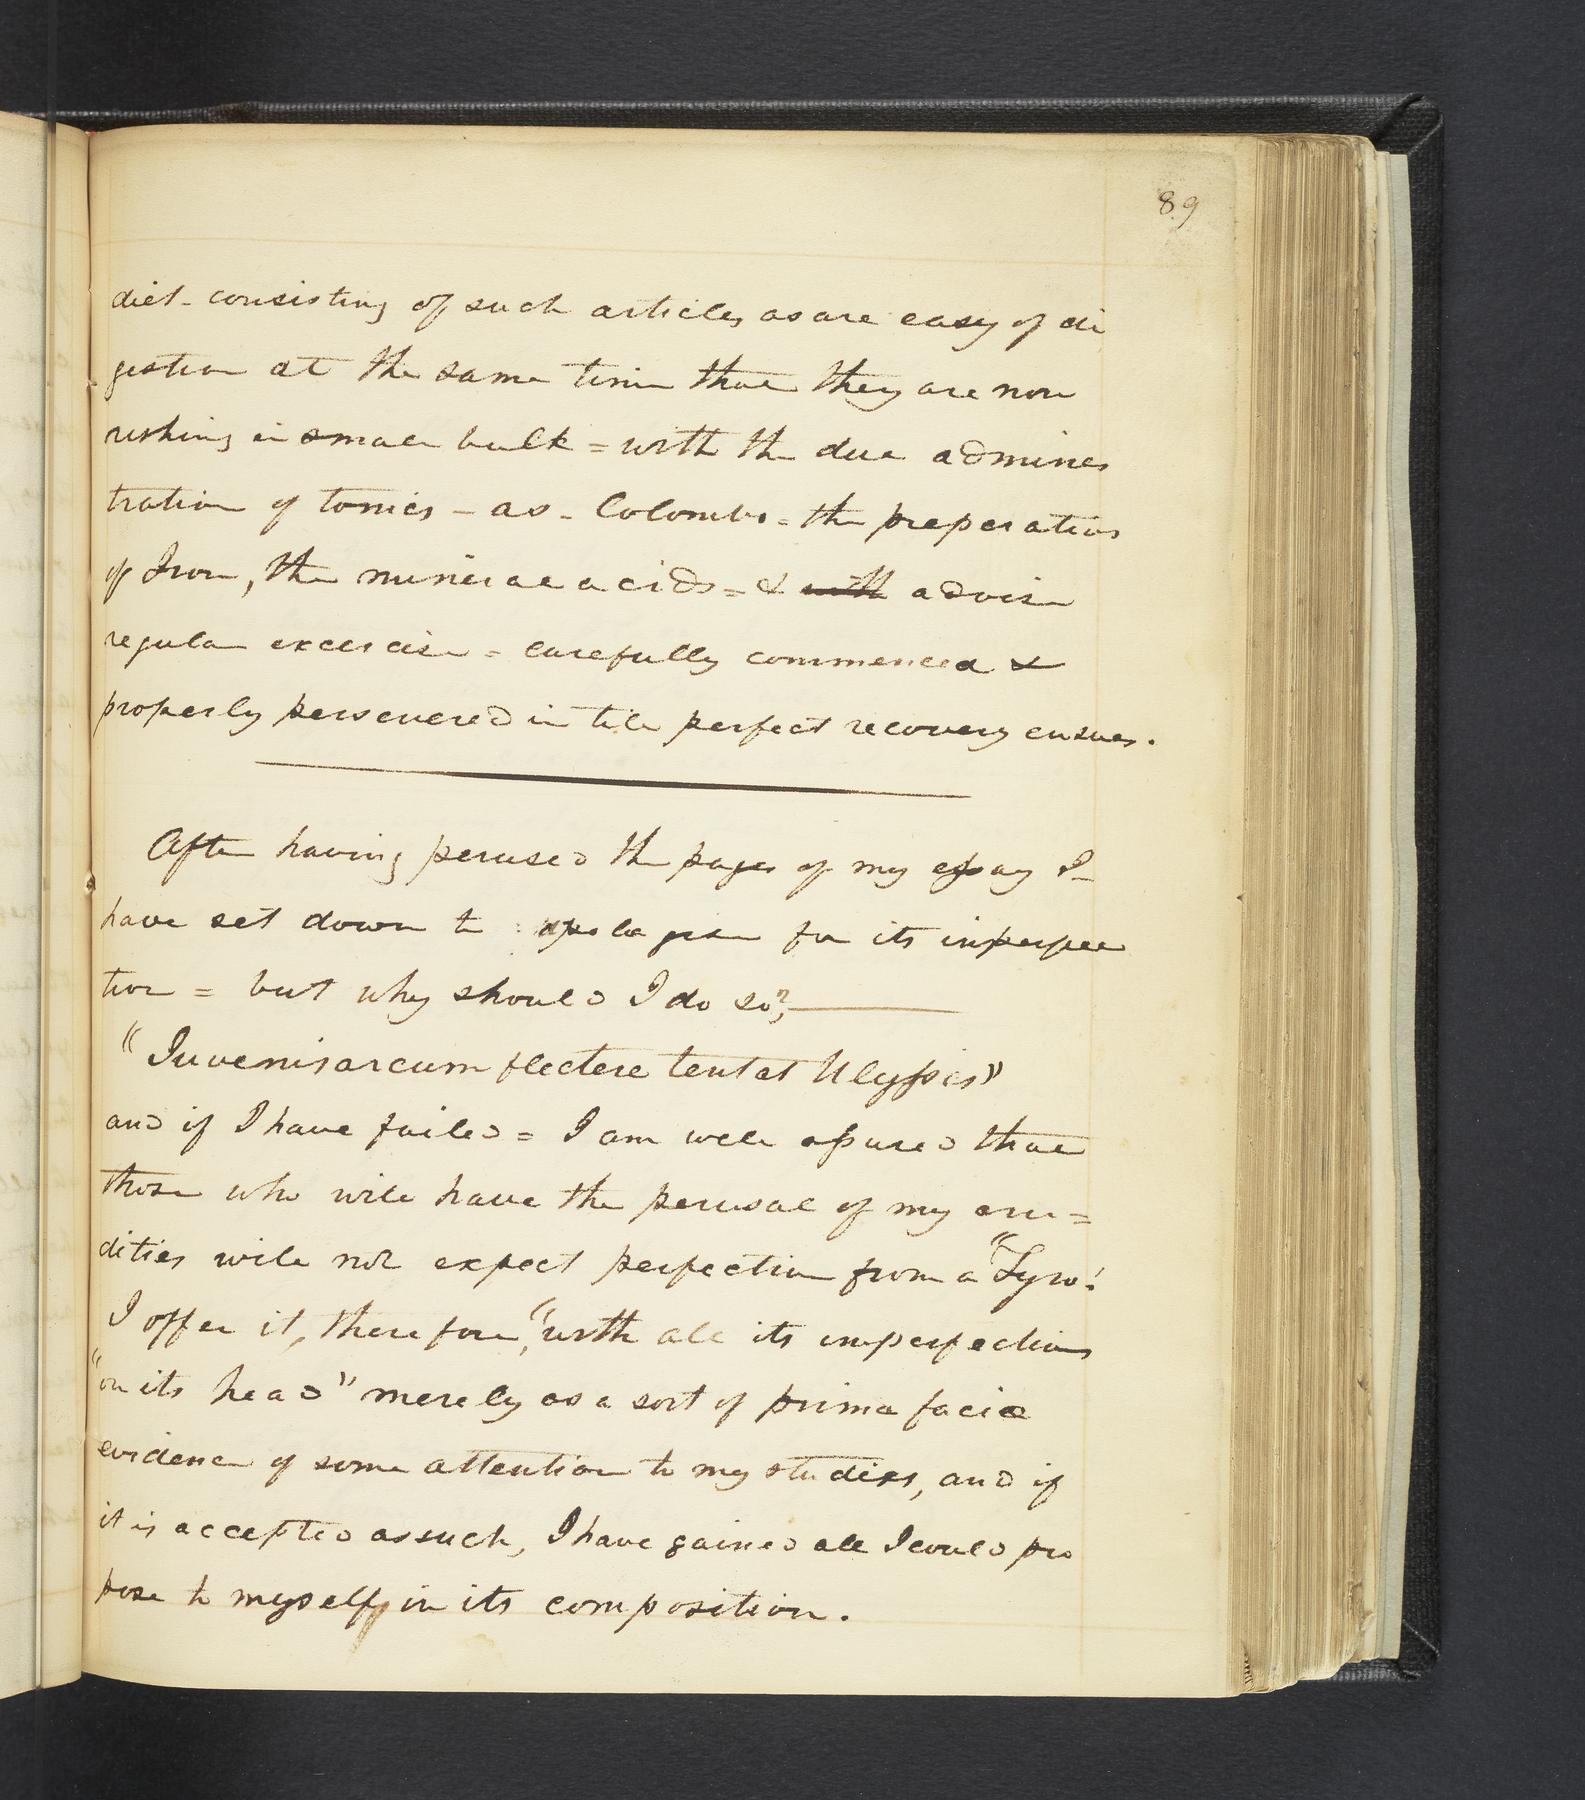 89
diet - consisting of such articles as are easy of di
gestion at the same time that they are nou
rishing in small bulk = with the due adminis
tration of tonics - as - Colombo - the preperations
of Iron, the mineral acids = & with advise
regular excercise = carefully commenced &
properly persevered in till perfect recovery ensues.
After having perused the pages of my essay I
have set down to apologise for its imperfec
tion = but why should I do so?
"Juvenis arcum flectere tentat Ulyssis"
and if I have failed = I am well assured that
those who will have the perusal of my cru=
dities will not expect perfection from a "Tyro".
I offer it, therefore, "with all its imperfections
"on its head" merely as a sort of prima facie
evidence of some attention to my studies, and if
it is accepted as such, I have gained all I could pro
pose to myself in its composition.